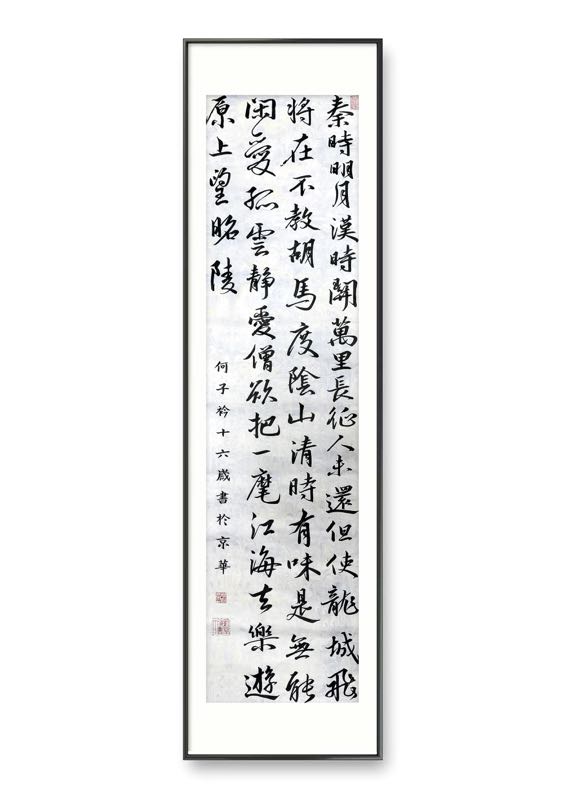 秦時明月漢時關萬里長征人未還但使龍城飛
將在不教胡馬度陰山清時有味是無能
閑愛孤雲靜愛僧欲把一麾江海去樂遊
原上望昭陵
何子衿十六歲書於京華